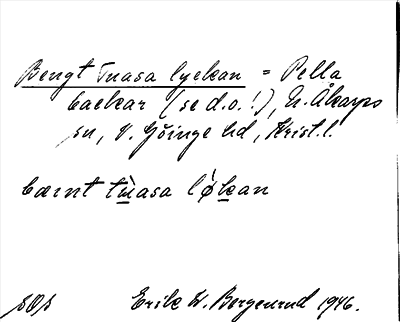 Bengt Tuasa lyckan = Pella
backar (se d.o.!), N. Åkarps
sn, V. Göinge hd, Krist. l.
bæent tùasa lø̀kan
sOs Erik W. Bergenrud 1946.